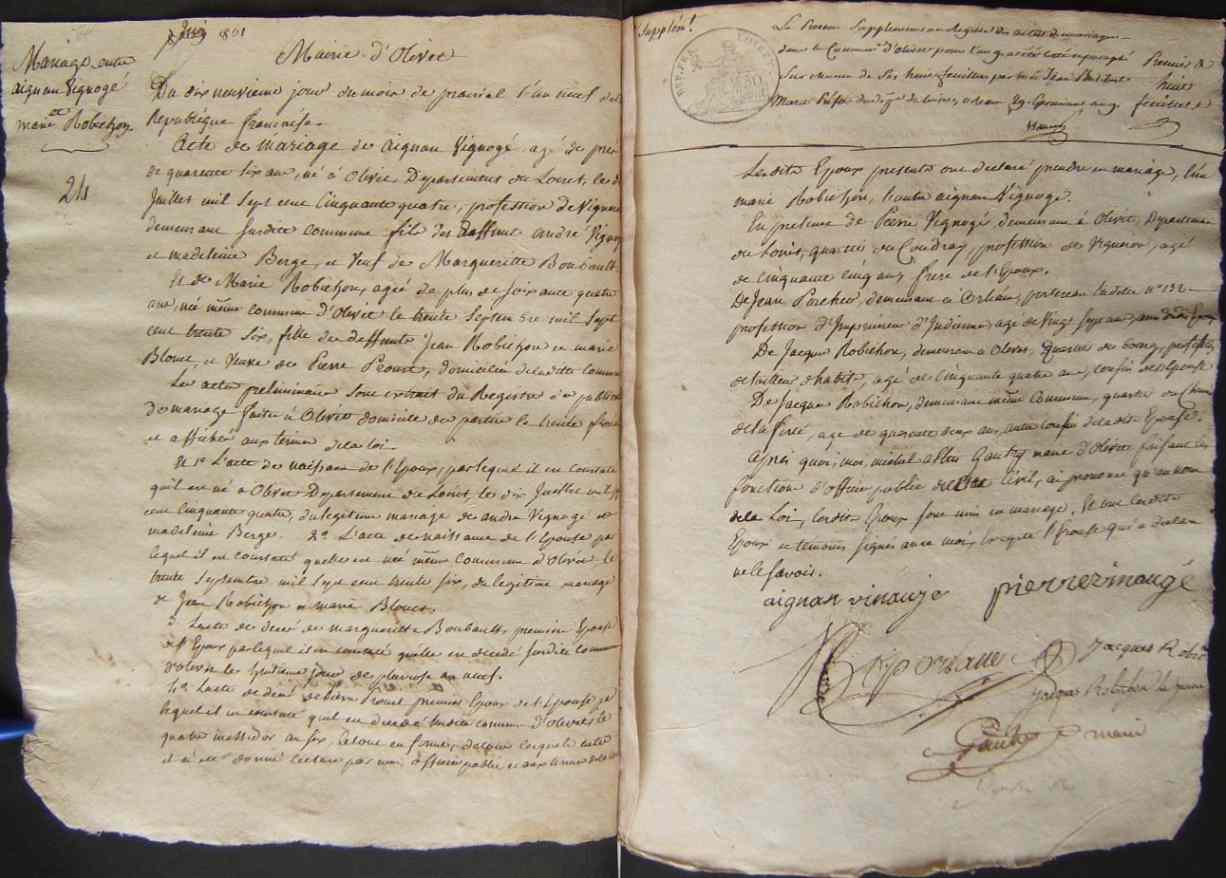 Juin 1801
Mariage entre
aignan Vignogé
et
marie Robichon
24
Mairie d'Olivet
Du dix neuvieme jour du mois de prairial l'an neuf de la
Republique francaise.
Acte de Mariage de Aignan Vignogé agé de près
de quarente six ans, né à Olivet Departement du Loiret, le dix
Juillet mil sept cent Cinquante quatre, profession de Vigneron
demeurant Susdite commune fils des deffunts andré Vignogé
et madeleine Berge, et Veuf de Marguerite Boubault.
Et de Marie Robichon, agée de plus de soixante quatre
ans, née même commune d'Olivet le trente Septembre mil Sept
cent trente six, fille des deffunts Jean Robichon et marie
Blouet, et Veuve de Pierre Prouet, domiciliée de ladite Commune
Les actes preliminaires sont extrait du Registre des publica
de mariage faites à Olivet domicile des parties le trente floreal
et affichés aux termes de la loi.
1º L'acte de naissance de l'Epoux, par lequel il est constaté
qu'il est né à Olivet Departement du Loiret, le dix Juillet mil sept
cent cinquante quatre, du legitime mariage de andré Vignogé et
madeleine Berge. 2º L'acte de naissance de l'Epouse par
lequel il est constaté quelle est née même Commune d'Olivet le
trente Septembre mil sept cent trente six, du legitime mariage
de Jean Robichon et marie Blouet.
3º L'acte de decès de marguerite Boubault, premiere Epouse
de l'Epoux par lequel il est constaté quelle est decedé susdite commune
d'olivet le huitieme jour de pluviose an neuf.
4º L'acte de decès de pierre Prouet premier Epoux de l'Epouse par
lequel il est constaté quil est decedé susdite commune d'Olivet le
quatre messidor an six, le tout en forme, de tous lesquels actes
il a été donné lecture par moi officier public et aux termes de la loi
Supplémt.
Le Present Supplement au Registre des actes de mariages
dans la Commune d'olivet pour l'an
Premier &
Maire
Lesdits Epoux presents ont declaré prendre en mariage, l'un
marie Robichon, l'autre aignan Vignogé.
En presence de Pierre Vignogé demeurant à Olivet, Departement
du Loiret, quartier du Coudray, profession de Vigneron, agé
de cinquante cinq ans, frere de l'Epoux.
De Jean Porcher, demeurant à Orléans, nº 132
profession d'Imprimeur d'Indienne, agé de Vingt sept ans, ami
De Jacques Robichon, demeurant à Olivet, Quartier du bourg, profession
de tailleur d'habits, agé de Cinquante quatre ans, cousin de l'Epouse
De Jacques Robichon, demeurant même Commune, quartier du
de la ferté, agé de quarente deux ans, autre cousin de ladite Epouse.
après quoi, moi, michel Gautry maire d'Olivet faisant les
fonctions d'officier public de l'Etat Civil, ai prononcé qu'au nom
de la Loi, lesdits Epoux sont unis en mariage, Et ont lesdits
Epoux et temoins signés avec moi, excepté l'Epouse qui a declaré
ne le savoir.
aignan vinauje pierrevinaugé
Jacques Robichon
Jacques Robichon le jeune
Gautry maire